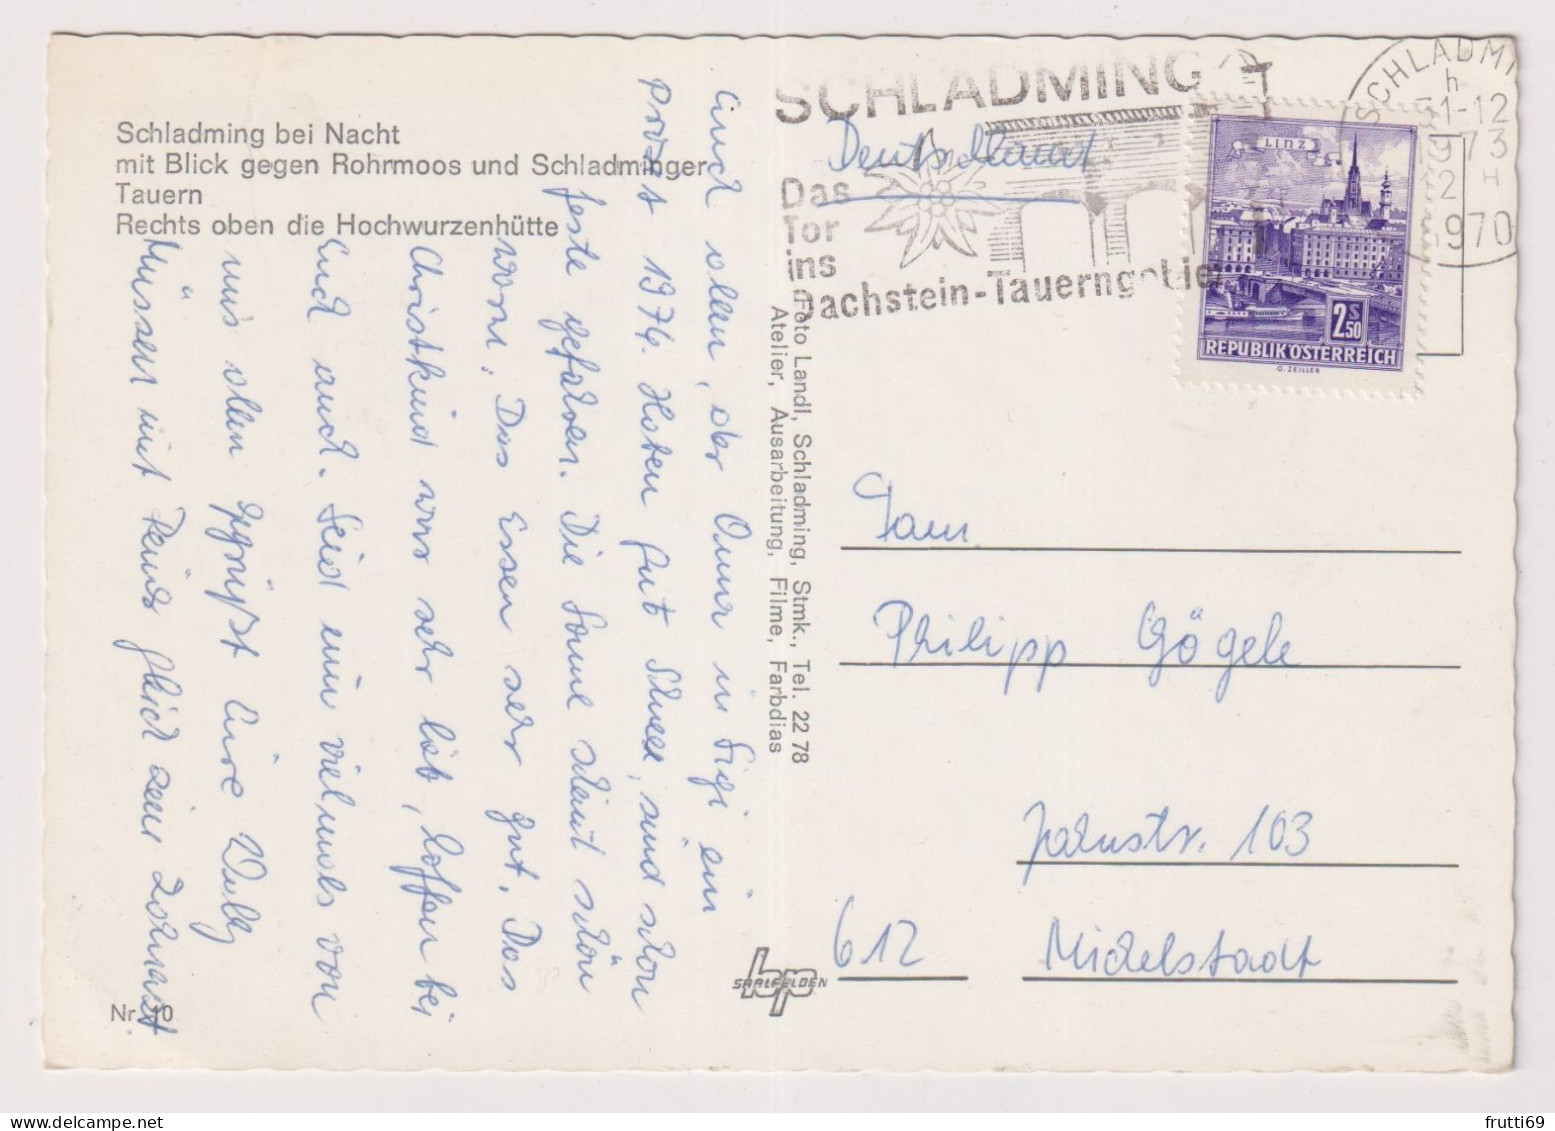 Schladming bei Nacht
mit Blick gegen Rohrmoos und Schladminger
Tauern
Rechts oben die Hochwurzenhütte
Euch allen, der Oma u. Sigi ein
pros. 1974. Haben gut Schnee, sind schon
feste gefahren. Die Sonne scheint schön
warm. Das Essen ser gut. Das
Christkind war sehr lieb, hoffen bei
Euch auch. Seid nun vielmals von
uns allen gegrüßt Eure Wally
Müssen mit Reins gleich zum Zahnarzt.
Nr. 10
Foto Landl, Schladming, Stmk., Tel. 22 78
Atelier, Ausarbeitung, Filme, Farbdias
SAALFELDEN
SCHLADMING
Das
Tor
ins
Dachstein-Tauerngebiet
SCHLADMI
h
31-12
73
8970
Deutschland
LINZ
2 S 50
REPUBLIK ÖSTERREICH
O. ZEILLER
Fam
Philipp Gögele
Jahnstr. 103
612 Michelstadt
frutti69